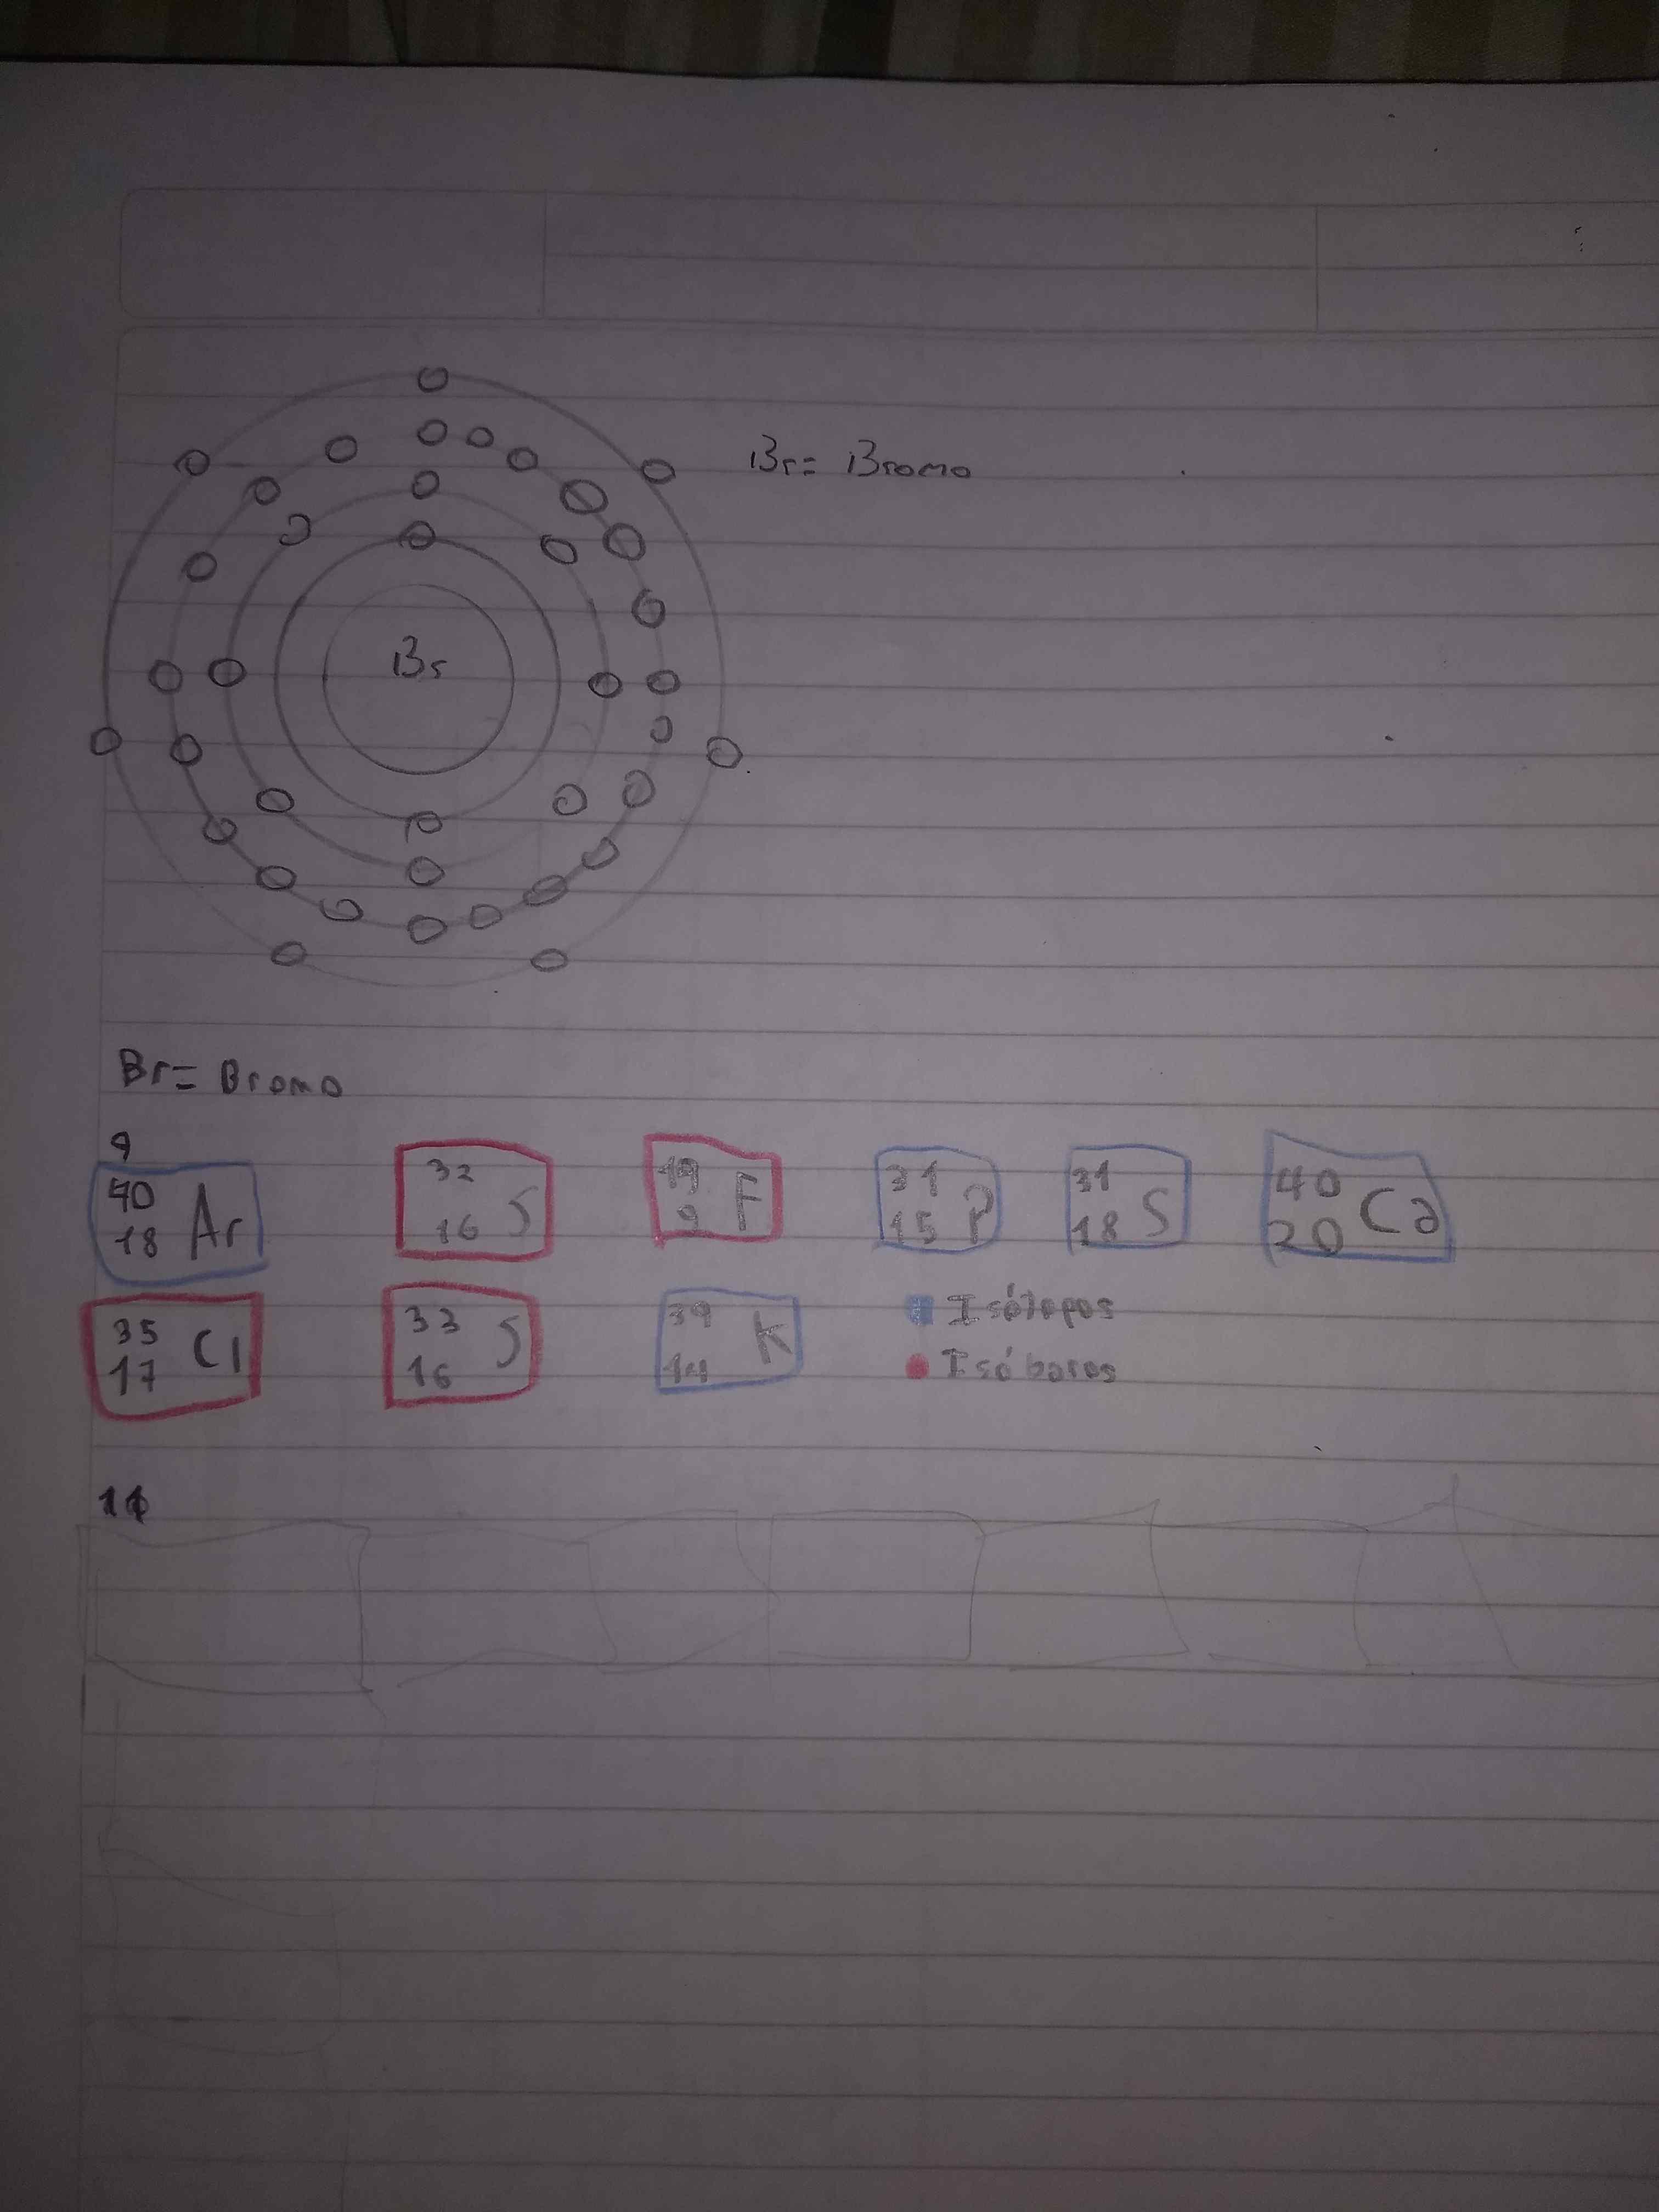 Br= Bromo
Br
Br= Bromo
9
40 18 Ar 32 16 S 19 9 F 31 15 P 31 18 S 40 20 Ca
35 17 Cl 33 16 S 39 K
Isótopos
Isóbaros
11